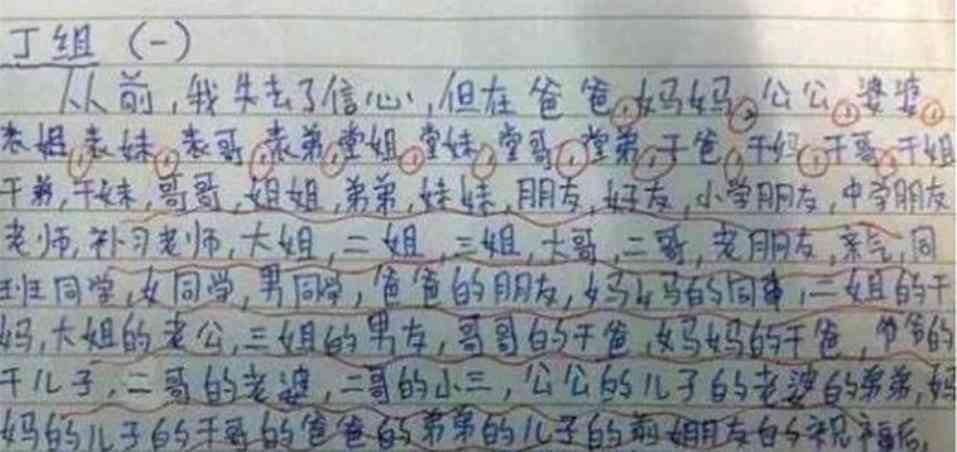 丁组 (一)
从前,我失去了信心,但在爸爸,妈妈,公公,婆婆,
表姐,表妹,表哥,表弟,堂姐,堂妹,堂哥,堂弟,干爸,干妈,干哥,干姐
干弟,干妹,哥哥,姐姐,弟弟,妹妹,朋友,好友,小学朋友,中学朋友
老师,补习老师,大姐,二姐,三姐,大哥,二哥,老朋友,亲气,同
班同学,女同学,男同学,爸爸的朋友,妈妈的同事,二姐的干
妈,大姐的老公,三姐的男友,哥哥的干爸,妈妈的干爸,爷爷的
干儿子,二哥的老婆,二哥的小三,公公的儿子的老婆的弟弟,妈
妈的儿子的干哥的爸爸的弟弟的儿子的前女朋友的祝福后,